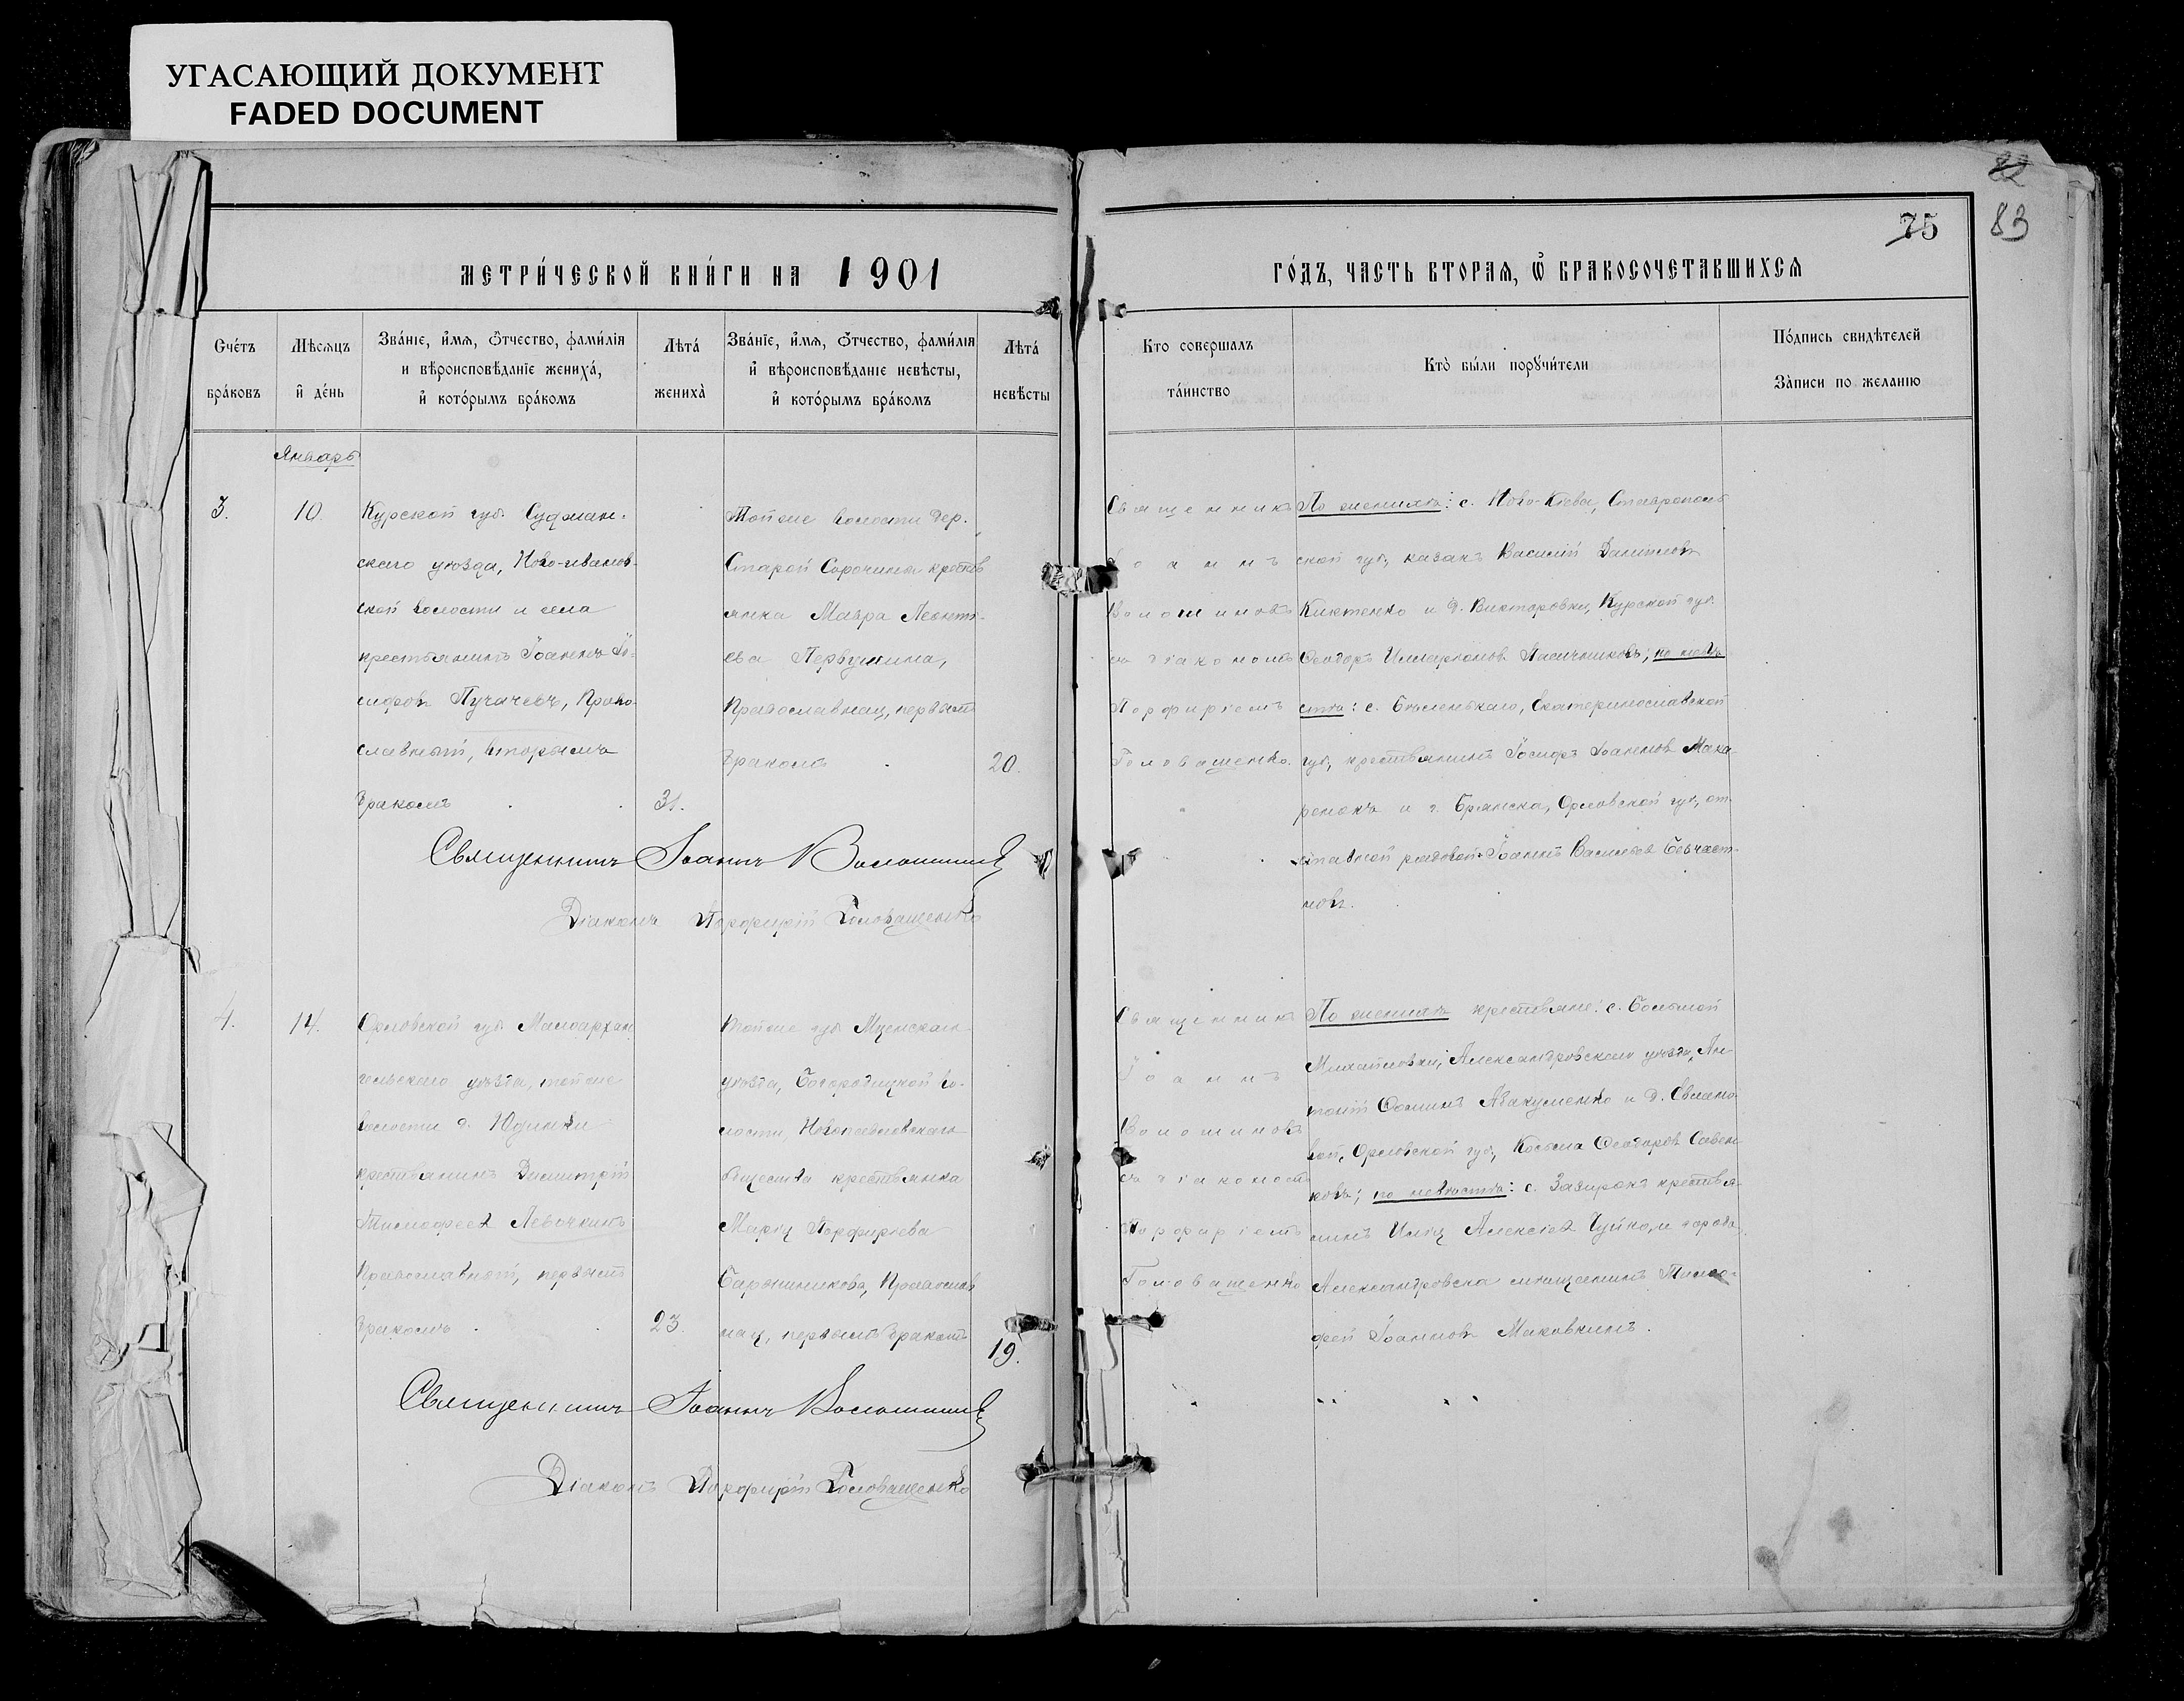 УГАСАЮЩИЙ ДОКУМЕНТ
FADED DOCUMENT
82
83
75
МЕТРИ́ЧЕСКОЙ КНИ́ГИ НА 1901
ГО́ДЪ, ЧАСТЬ ВТОРАѦ, Ѽ БРАКОСОЧЕТАВШИХСѦ
Счётъ
бра́ковъ
Мѣсѧцъ
и де́нь
Зва́нїе, и́мѧ, ѻ́тчество, фами́лїѧ
и вѣроисповѣ́данїе жениха̀,
и кото́рымъ бра́комъ
Лѣта̀
жениха̀
Зва́нїе, и́мѧ, ѻ́тчество, фами́лїѧ
и вѣроисповѣ́данїе невѣ́сты,
и кото́рымъ бра́комъ
Лѣта̀
невѣ́сты
Кто совершалъ
та́инство
Кто̀ бы́ли порꙋчи́тели
По́дпись свидѣ́телей
За́писи по жела́нїю
Январь
3.
10.
Курской губ. Суджан-
скаго уѣзда, Ново-иванов-
ской волости и села
крестьянинъ Іоаннъ Іо-
сифовъ Пугачевъ, Право-
славный, вторымъ
бракомъ
31.
Тойже волости дер.
Старой Сорочины крестья
янка Мавра Леонть-
ева Первушина,
Православнаго, первымъ
бракомъ
20.
Священникъ
Іоаннъ
Волошиновъ
съ діакономъ
Порфиріемъ
Головащенко.
По женихѣ: с. Ново-Кіева, Ставрополь
ской губ., казакъ Василій Даниловъ
Киктенко и д. Викторовки, Курской губ.
Ѳеодоръ Илларіоновъ Пасичниковъ; по невѣ
стѣ: с. Бѣленькаго, Екатеринославской
губ., крестьянинъ Іосифъ Іоанновъ Мака-
ренокъ и г. Брянска, Орловской губ., от-
ставной рядовой Іоаннъ Васильевъ Безчаст-
новъ.
Священникъ Іоаннъ Волошиновъ
Діаконъ Порфирій Головащенко
4.
14.
Орловской губ. Малоархан
гельскаго уѣзда, тойже
волости д. Юдинки
крестьянинъ Димитрій
Тимофеевъ Левочкинъ
Православный, первымъ
бракомъ
23.
Тойже губ. Мценскаго
уѣзда, Богородицкой во-
лости,
общества крестьянка
Марія Порфиріева
Православ
наго, первымъ бракомъ
19.
Священникъ
Іоаннъ
Волошиновъ
съ діакономъ
Порфиріемъ
Головащенко
По женихѣ крестьяне: с. Большой
Михайловки, Александровскаго уѣзда, Ан-
тоній Ѳоминъ Абакуменко и д.
Орловской губ., Косьма Ѳеодоровъ Савен
ковъ; по невѣстѣ: с. крестья-
нинъ Илія Алексіевъ Чуйко, и города
Александровска мѣщанинъ Тимо-
фей Іоанновъ Маковкинъ.
Священникъ Іоаннъ Волошиновъ
Діаконъ Порфирій Головащенко